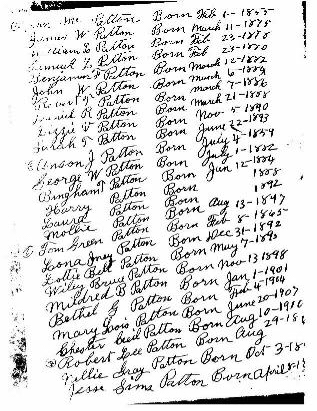 Mc Patton Born Feb 1-1853
James W Patton Born March 11-1875
William E Patton Born Feb 23-1878
Samuel L Patton Born Feb 23-1880
Benjamin F Patton Born March 12-1882
John W Patton Born March 6-1884
Robert Patton Born March 7-1886
R Patton Born March 21-1888
Lizzie V Patton Born Nov 5-1890
Sarah T Patton Born June 22-1893
Anson J Patton Born July 4-1859
George W Patton Born July 1-1882
Bingham Patton Born Jan 12-1884
Harry Patton Born 1888
Laura Patton Born 1892
Mollie Patton Born Aug 13-1897
Tom Green Patton Born Feb 8-1865
Lona Iney Patton Born Dec 31-1892
Lottie Bell Patton Born May 7-1895
Wiley Bruce Patton Born Nov 13 1898
Mildred B Patton Born Jan 1-1901
Bethel G Patton Born Feb 4-1904
Mary Lois Patton Born June 20-1907
Chester Cecil Patton Born Aug 10-1910
Robert Lee Patton Born Aug 29-18
Nellie Gray Patton Born Oct 3-18
Jesse Sims Patton Born April 8-1